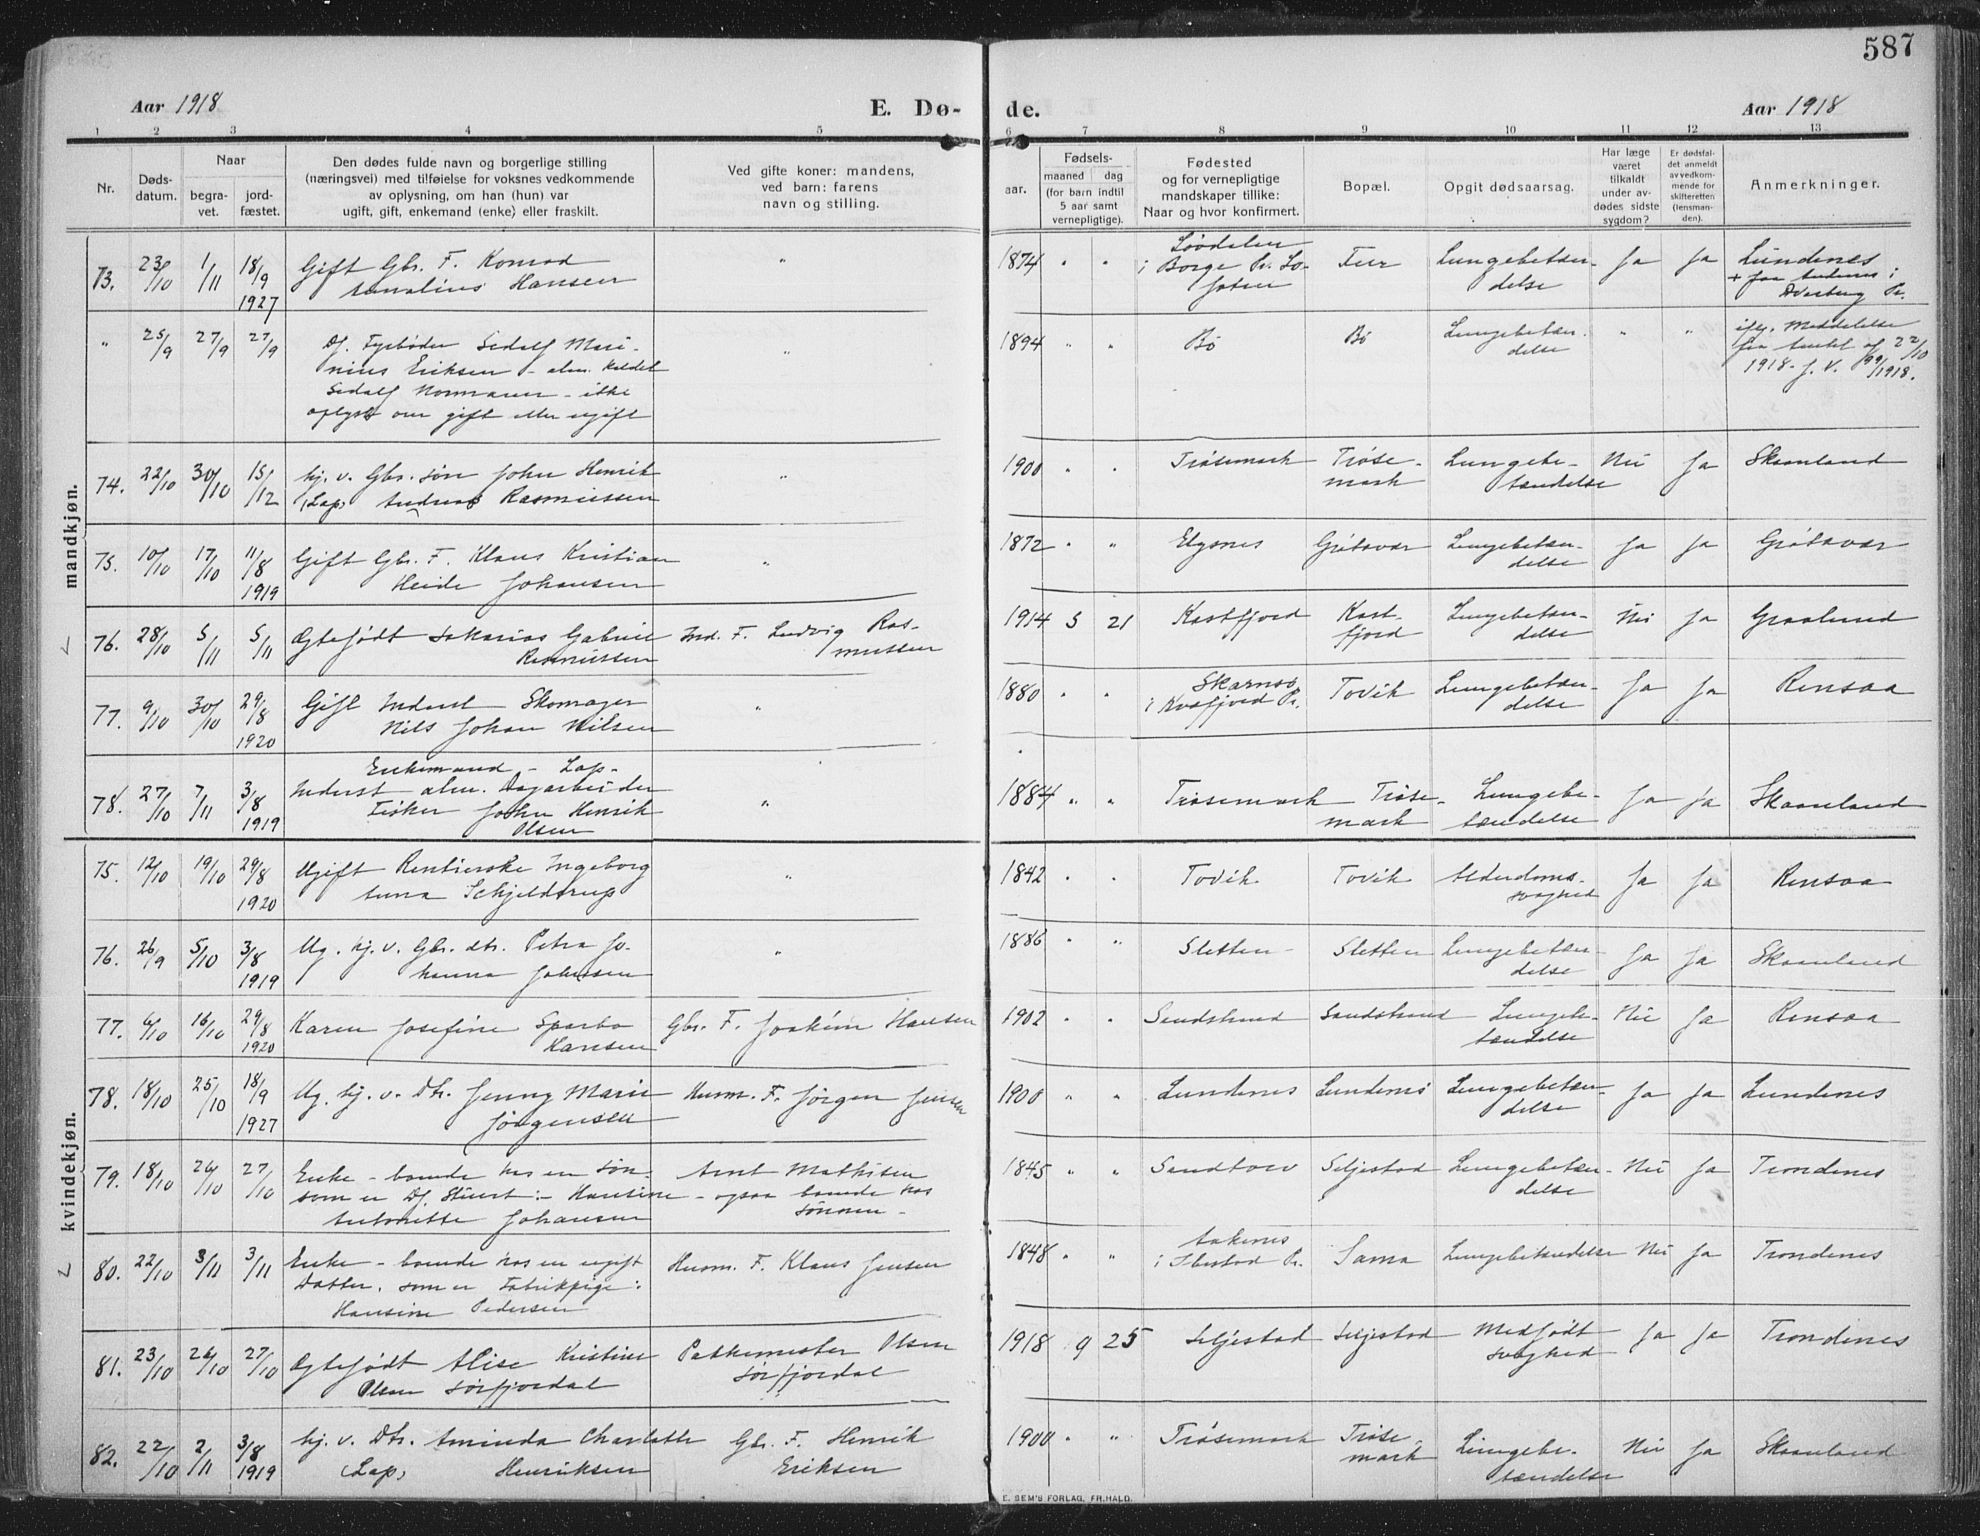 587
Aar 1918 E. Dø- de. Aar 1918
1 2 3 4 5 6 7 8 9 10 11 12 13
Nr.
Døds-
datum.
Naar
begra-
vet.
jord-
fæstet.
Den dødes fulde navn og borgerlige stilling
(næringsvei) med tilføielse for voksnes vedkommende
av oplysning, om han (hun) var
ugift, gift, enkemand (enke) eller fraskilt.
Ved gifte koner: mandens,
ved barn: farens
navn og stilling.
aar.
Fødsels-
maaned dag
(for barn indtil
5 aar samt
vernepligtige).
Fødested
og for vernepligtige
mandskaper tillike:
Naar og hvor konfirmert.
Bopæl.
Opgit dødsaarsag.
Har læge
været
tilkaldt
under av-
dødes sidste
sygdom?
Er dødsfal-
det anmeldt
av vedkom-
mende for
skifteretten
(lensman-
den).
Anmerkninger.
mandkjøn.
73. 23/10 1/11 18/9 1927 Gift Gbr. F. Konrad
Hansen
" 1874 " "
i Borge Pr. Lo-
foten
Lungebetæn-
delse
Ja Ja Lundenes
Dverberg Pr.
" 25/9 27/9 27/9 Df. Fyrbøder Sedolf Mari-
nius Eriksen - alm. kaldet
Sedolf Normann - ikke
oplyst om gift eller ugift
" 1894 " " Bø Bø Lungebetæn-
delse
" " ifg. Meddelelse
22/10
1918 - J. V. 99/1918.
74. 22/10 30/10 15/12 hj. v. Gbr. søn John Henrik
(Lap) Andreas Rasmussen
" 1900 " " Trøsemark Trøse-
mark
Lungebe-
tændelse
Nei Ja Skaanland
75. 10/10 17/10 11/8 1919 Gift Gbr. F. Klaus Kristian
Heide Johansen
" 1872 " " Elgsnes Grøtavær Lungebetæn-
delse
Ja Ja Grøtavær
76. 28/10 5/11 5/11 Ægtefødt Sakarias Gabriel
Rasmussen
Ind. F. Ludvig Ras-
mussen
1914 5 21 Kastfjord Kast-
fjord
Lungebetæn-
delse
Nei Ja Graalund
77. 9/10 30/10 29/8 1920 Gift Inderst Skomager
Nils Johan Nilsen
" 1880 " " Skarnso
i Kvæfjord Pr.
Tovik Lungebetæn-
delse
Ja Ja Rensaa
78. 27/10 7/11 3/8 1919 Enkemand - Lap-
Inderst alm. Dagarbeider
Fisker John Henrik
Olsen
" 1884 " " Trøsemark Trøse-
mark
Lungebe-
tændelse
Ja Ja Skaanland
kvindekjøn.
75. 12/10 19/10 29/8 1920 Ugift Rentierske Ingeborg
Anna Schjelderup
" 1842 " " Tovik Tovik Alderdoms-
svaghed
Ja Ja Rensaa
76. 26/9 5/10 3/8 1919 Ug. hj. v. Gbr. dtr. Petra Jo-
hanna Johnsen
" 1886 " " Sletten Sletten Lungebetæn-
delse
Ja Ja Skaanland
77. 6/10 16/10 29/8 1920 Karen Josefine Sparbo
Hansen
Gbr. F. Joakim Hansen
1902 " " Sandstrand Sandstrand Lungebe-
tændelse
Nei Ja Rensaa
78. 18/10 25/10 18/9 1927 Ug. hj. v. Dtr. Jenny Marie
Jørgensen
Husm. F. Jørgen Jensen
1900 " " Lundenes Lundenes Lungebetæn-
delse
Ja Ja Lundenes
79. 18/10 26/10 27/10 Enke - boende hos en søn
som er Df. Stuert: - Hansine
Antonette Johansen
Arnt Mathisen
- ogsaa boende hos
sønnen -
1845 " " Sandtorv Seljestad Lungebetæn-
delse
Nei Ja Trondenes
80. 22/10 3/11 3/11 Enke - boende hos en ugift
Datter, som er Fabrikpige:
Hansine Pedersen
Husm. F. Klaus Jensen
1848 " " Aakenes
i Ibestad Pr.
Sama Lungebetændelse Nei Ja Trondenes
81. 23/10 26/10 27/10 Ægtefødt Alise Kristine
Olsen Sørfjordal
Pakkemester Olsen
Sørfjordal
1918 9 25 Seljestad Seljestad Medfødt
svaghed
Ja Ja Trondenes
82. 22/10 2/11 3/8 1919 hj. v. Dtr. Aminda Charlotte
(Lap) Henriksen
Gbr. F. Henrik
Eriksen
1900 " " Trøsemark Trøse
mark
Lungebe-
tændelse
Nei Ja Skaanland
E. SEM'S FORLAG, FR.HALD.